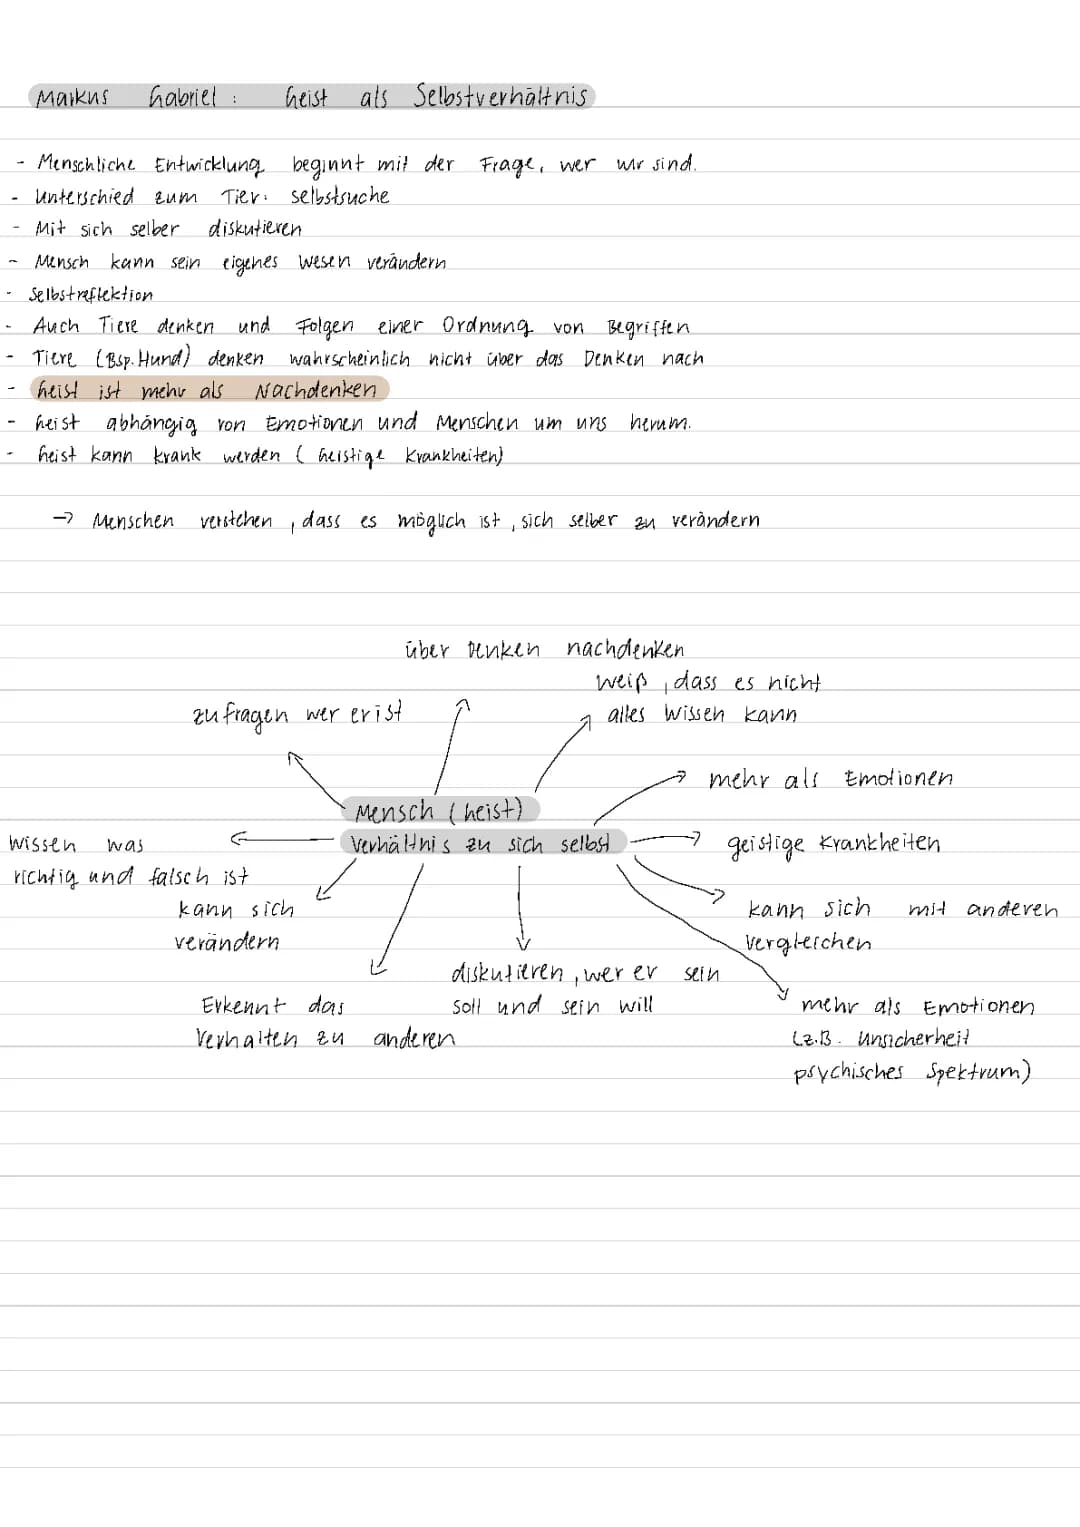 Markus Gabriel : Geist als Selbstverhältnis
- Menschliche Entwicklung beginnt mit der Frage, wer wir sind.
- Unterschied zum Tier: selbstsuche
- Mit sich selber diskutieren
- Mensch kann sein eigenes Wesen verändern
- Selbstreflektion
- Auch Tiere denken und Folgen einer Ordnung von Begriffen
- Tiere (Bsp. Hund) denken wahrscheinlich nicht über das Denken nach
- Geist ist mehr als Nachdenken
- Geist abhängig von Emotionen und Menschen um uns herum.
- Geist kann krank werden ( Geistige Krankheiten)
→ Menschen verstehen , dass es möglich ist , sich selber zu verändern
über Denken nachdenken
weiß , dass es nicht
alles wissen kann
zu fragen wer er ist
mehr als Emotionen
Mensch (Geist)
Verhältnis zu sich selbst
wissen was
richtig und falsch ist
geistige Krankheiten
kann sich
verändern
kann sich mit anderen
vergleichen
diskutieren , wer er sein
soll und sein will
Erkennt das
Verhalten zu anderen
mehr als Emotionen
(z.B. Unsicherheit
psychisches Spektrum)